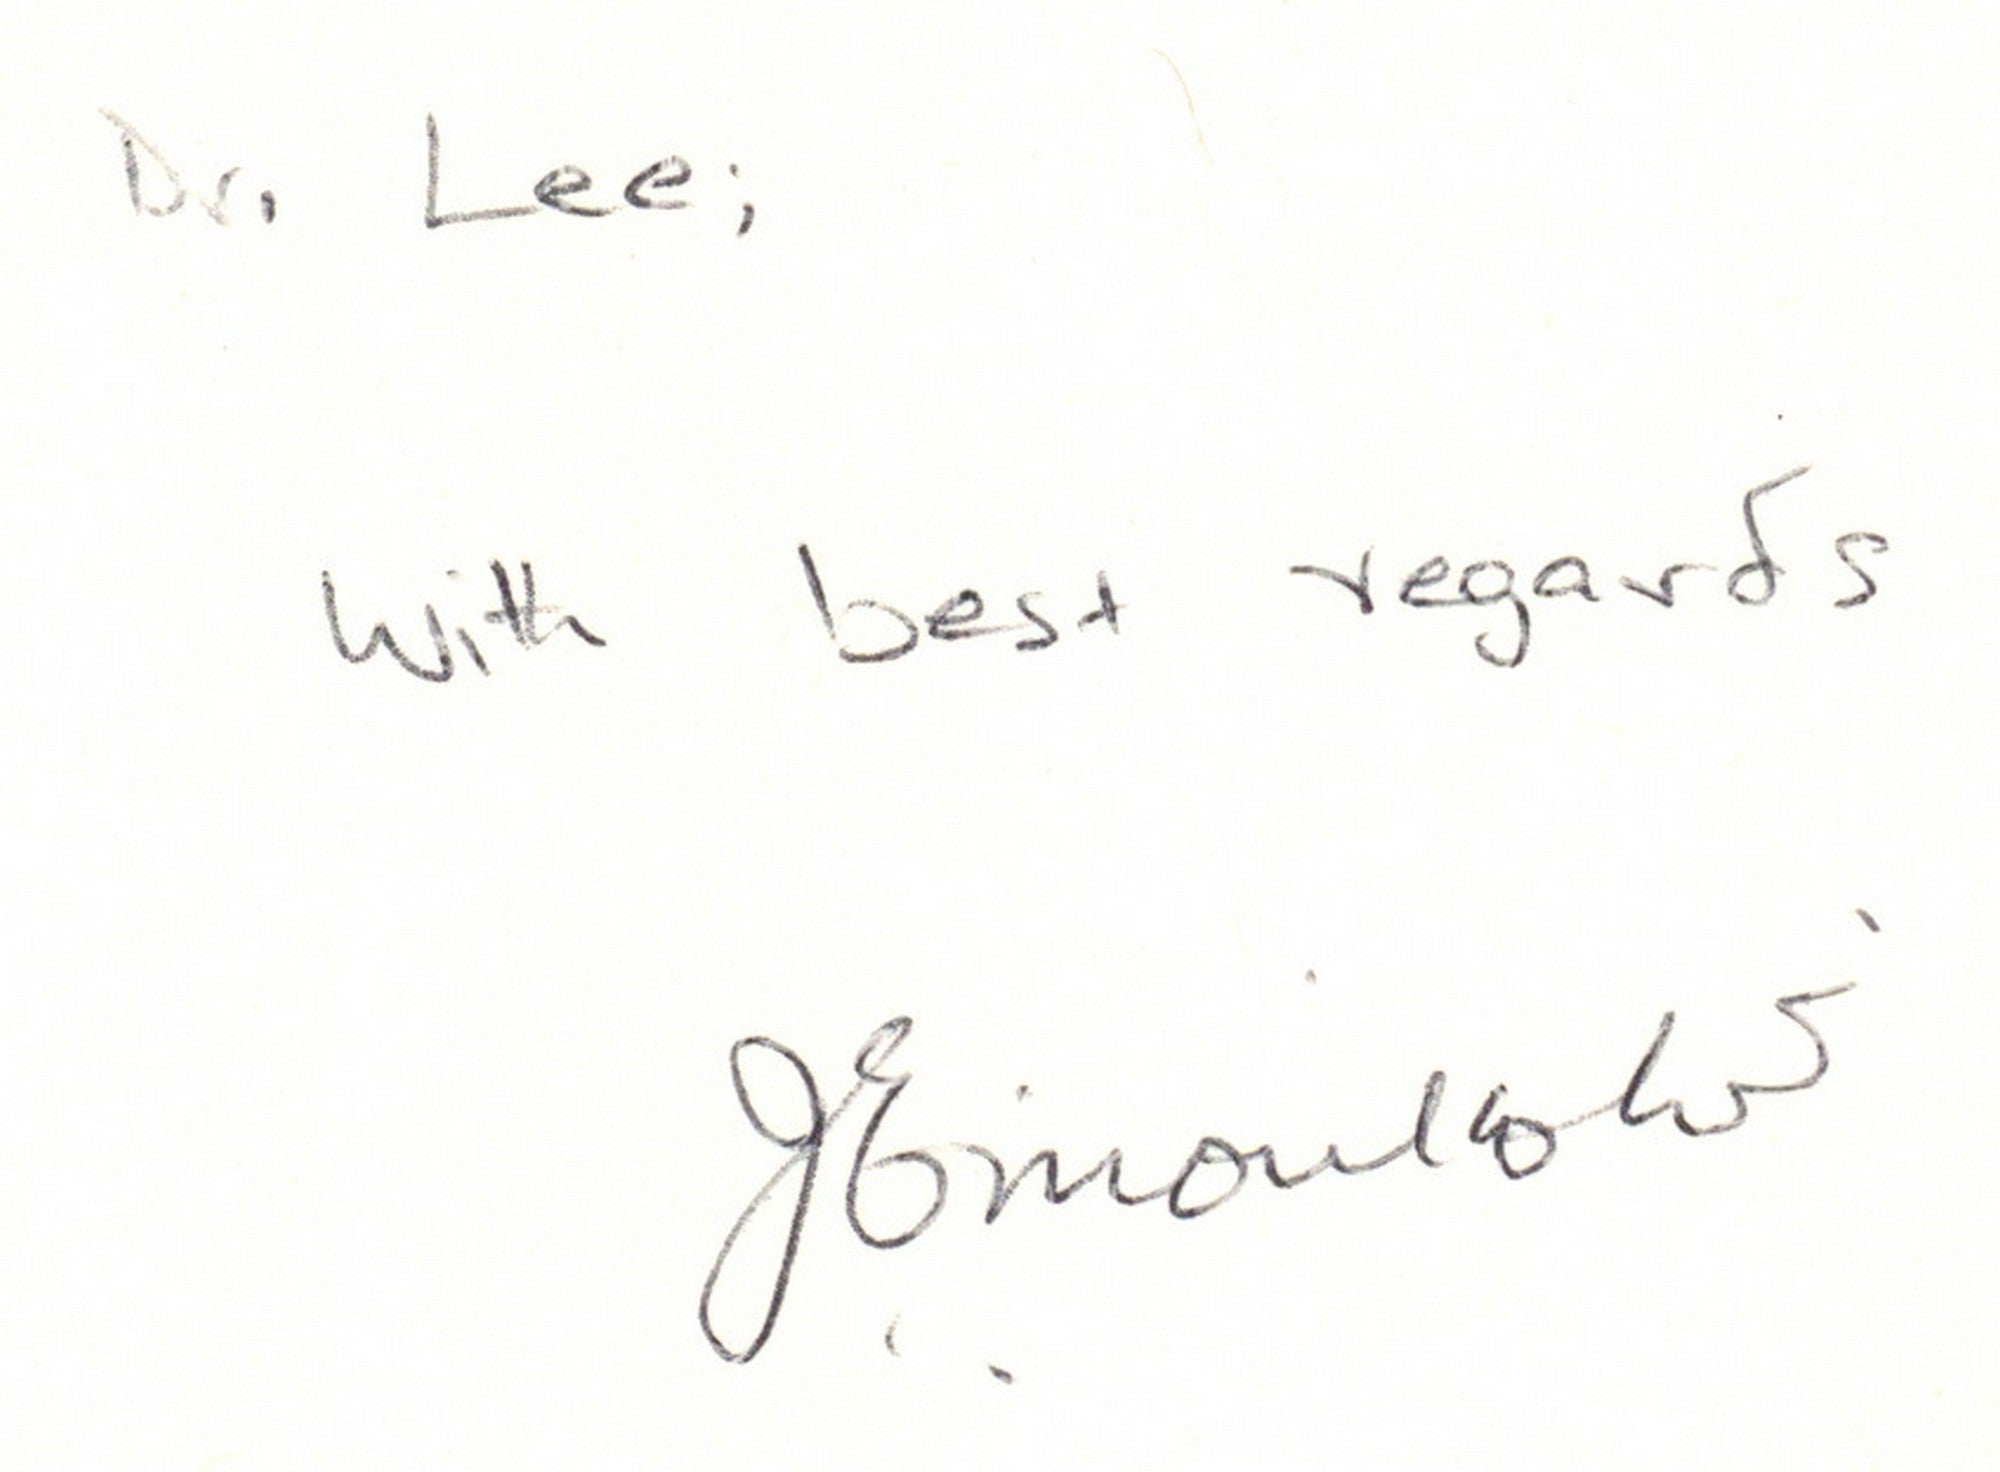 Dr. Lee;
With best regards